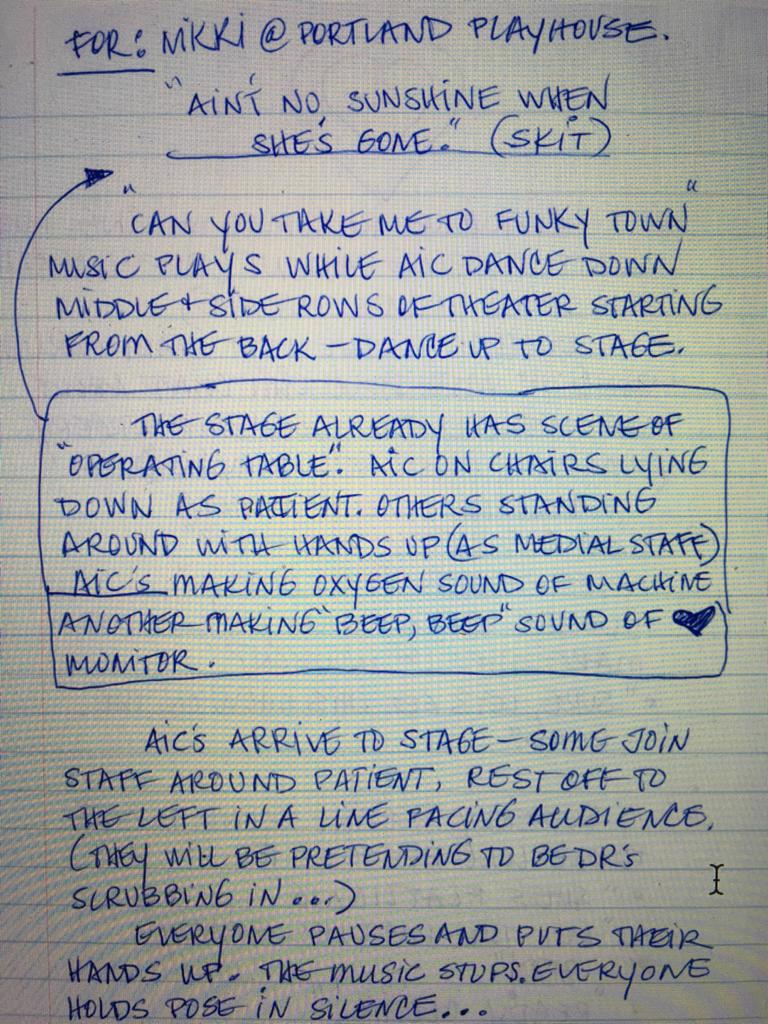 FOR: NIKKI @ PORTLAND PLAYHOUSE.
"AIN'T NO SUNSHINE WHEN
SHE'S GONE." (SKIT)
"CAN YOU TAKE ME TO FUNKY TOWN"
MUSIC PLAYS WHILE AIC DANCE DOWN
MIDDLE + SIDE ROWS OF THEATER STARTING
FROM THE BACK – DANCE UP TO STAGE.
THE STAGE ALREADY HAS SCENE OF
"OPERATING TABLE". AIC ON CHAIRS LYING
DOWN AS PATIENT. OTHERS STANDING
AROUND WITH HANDS UP (AS MEDIAL STAFF)
AIC'S MAKING OXYGEN SOUND OF MACHINE
ANOTHER MAKING "BEEP, BEEP" SOUND OF ♥
MONITOR.
AIC'S ARRIVE TO STAGE – SOME JOIN
STAFF AROUND PATIENT, REST OFF TO
THE LEFT IN A LINE FACING AUDIENCE.
(THEY WILL BE PRETENDING TO BE DR'S
SCRUBBING IN...)
EVERYONE PAUSES AND PUTS THEIR
HANDS UP. THE MUSIC STOPS. EVERYONE
HOLDS POSE IN SILENCE...